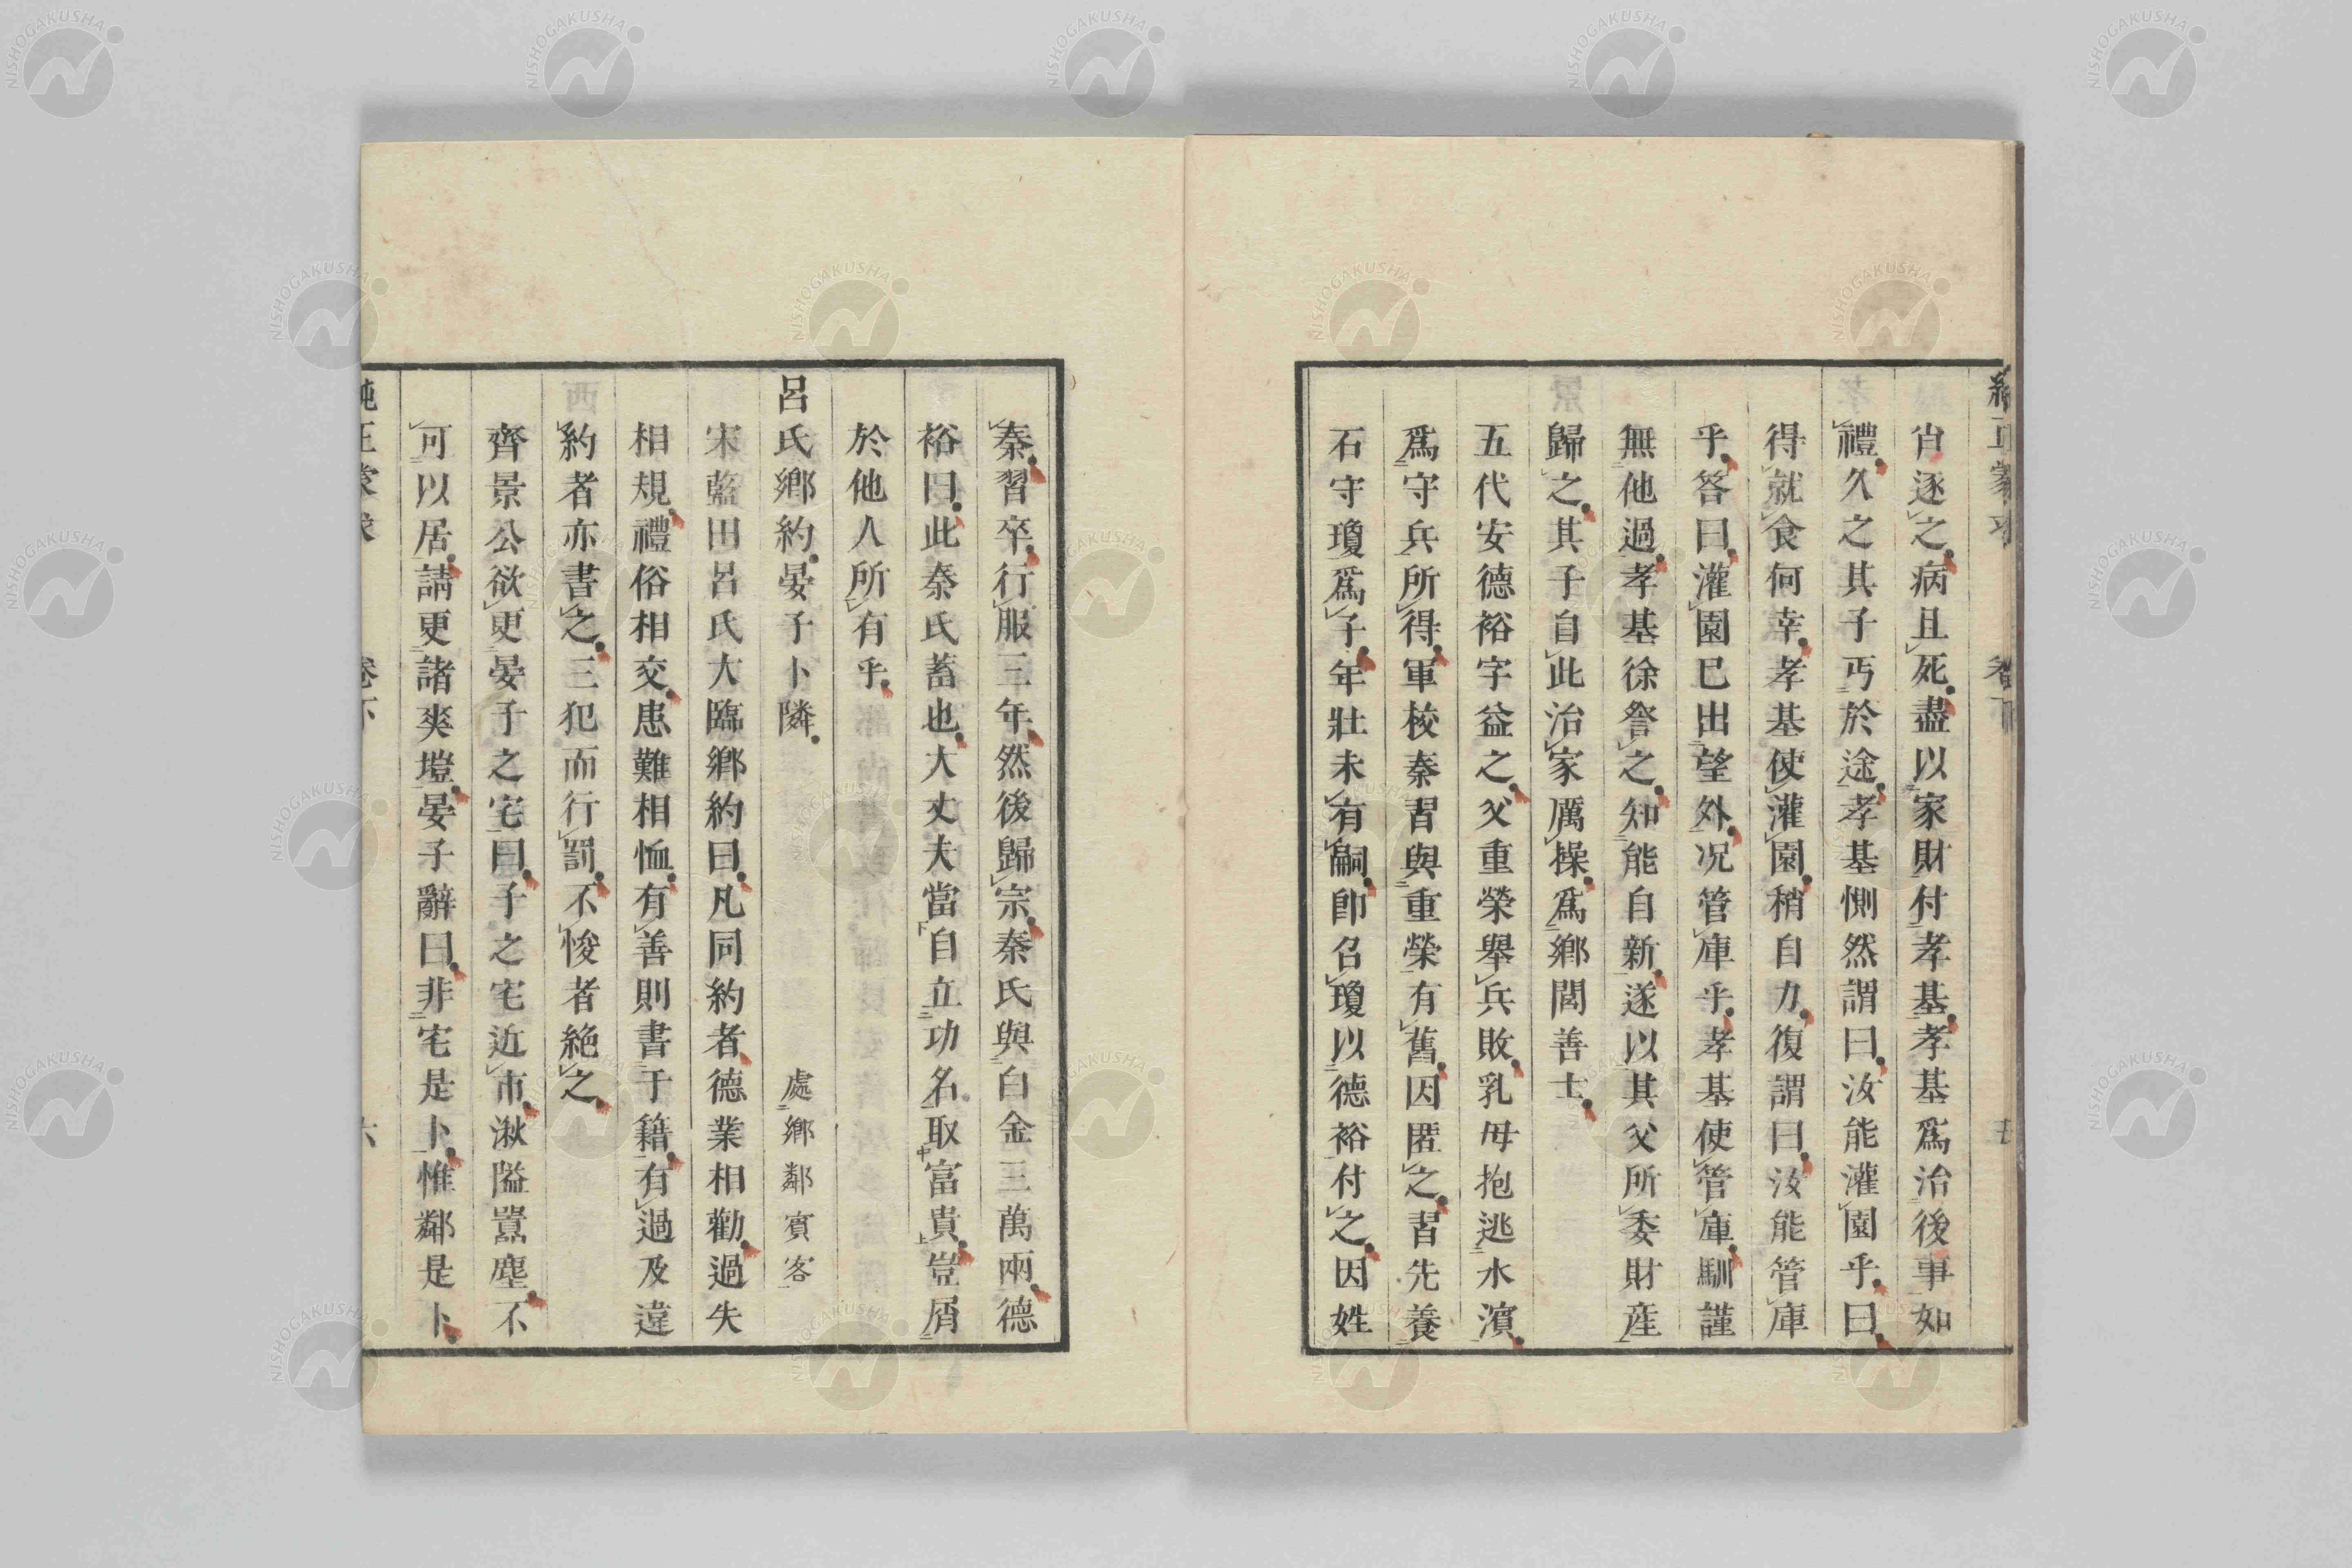 肖逐之病且死盡以家財付孝基孝基爲治後事如
禮久之其子丐於途孝基惻然謂曰汝能灌園乎曰
得就食何幸孝基使灌園稍自力復謂曰汝能管庫
乎答曰灌園已出望外况管庫乎孝基使管庫馴謹
無他過孝基徐詧之知能自新遂以其父所委財産
歸之其子自此治家厲操爲鄉閭善士
五代安德裕字益之父重榮舉兵敗乳母抱逃水濱
爲守兵所得軍校秦習與重榮有舊因匿之習先養
石守瓊爲子年壯未有嗣卽召瓊以德裕付之因姓
秦習卒行服三年然後歸宗秦氏與白金三萬兩德
裕曰此秦氏蓄也大丈夫當自立功名取富貴豈屑
於他人所有乎
呂氏鄉約晏子卜隣 處鄉鄰賓客
宋藍田呂氏大臨鄉約曰凡同約者德業相勸過失
相規禮俗相交患難相恤有善則書于籍有過及違
約者亦書之三犯而行罰不悛者絶之
齊景公欲更晏子之宅曰子之宅近市湫隘囂塵不
可以居請更諸爽塏晏子辭曰非宅是卜惟鄰是卜
純正蒙求 卷下 六
NISHOGAKUSHA